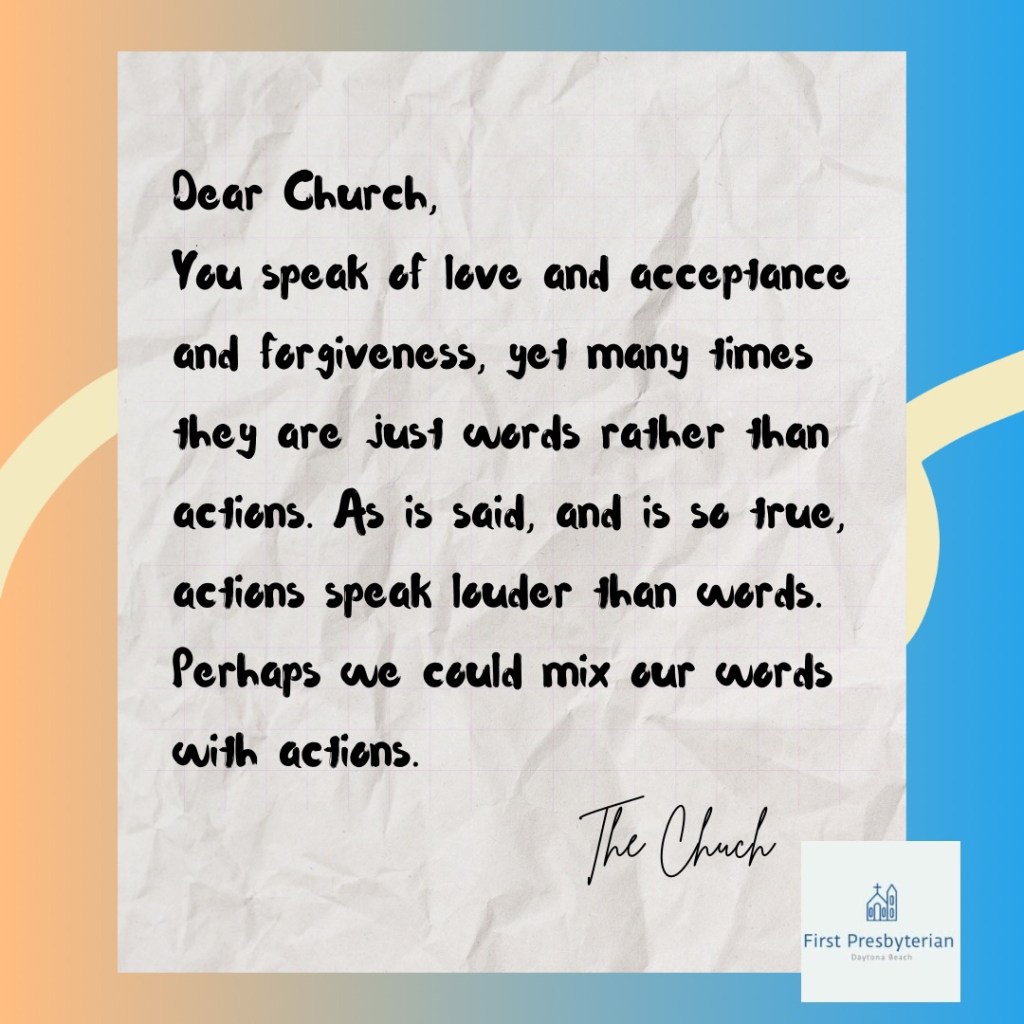 Dear Church,
You speak of love and acceptance
and forgiveness, yet many times
they are just words rather than
actions. As is said, and is so true,
actions speak louder than words.
Perhaps we could mix our words
with actions.
The Chuch
First Presbyterian
Daytona Beach